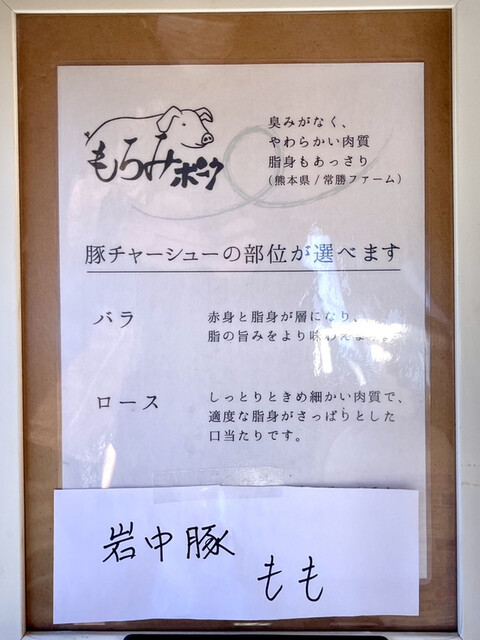 もろみポーク
臭みがなく、
やわらかい肉質
脂身もあっさり
(熊本県/常勝ファーム)
豚チャーシューの部位が選べます
バラ
赤身と脂身が層になり、
脂の旨みをより味わえま
ロース
しっとりときめ細かい肉質で、
適度な脂身がさっぱりとした
口当たりです。
岩中豚
もも